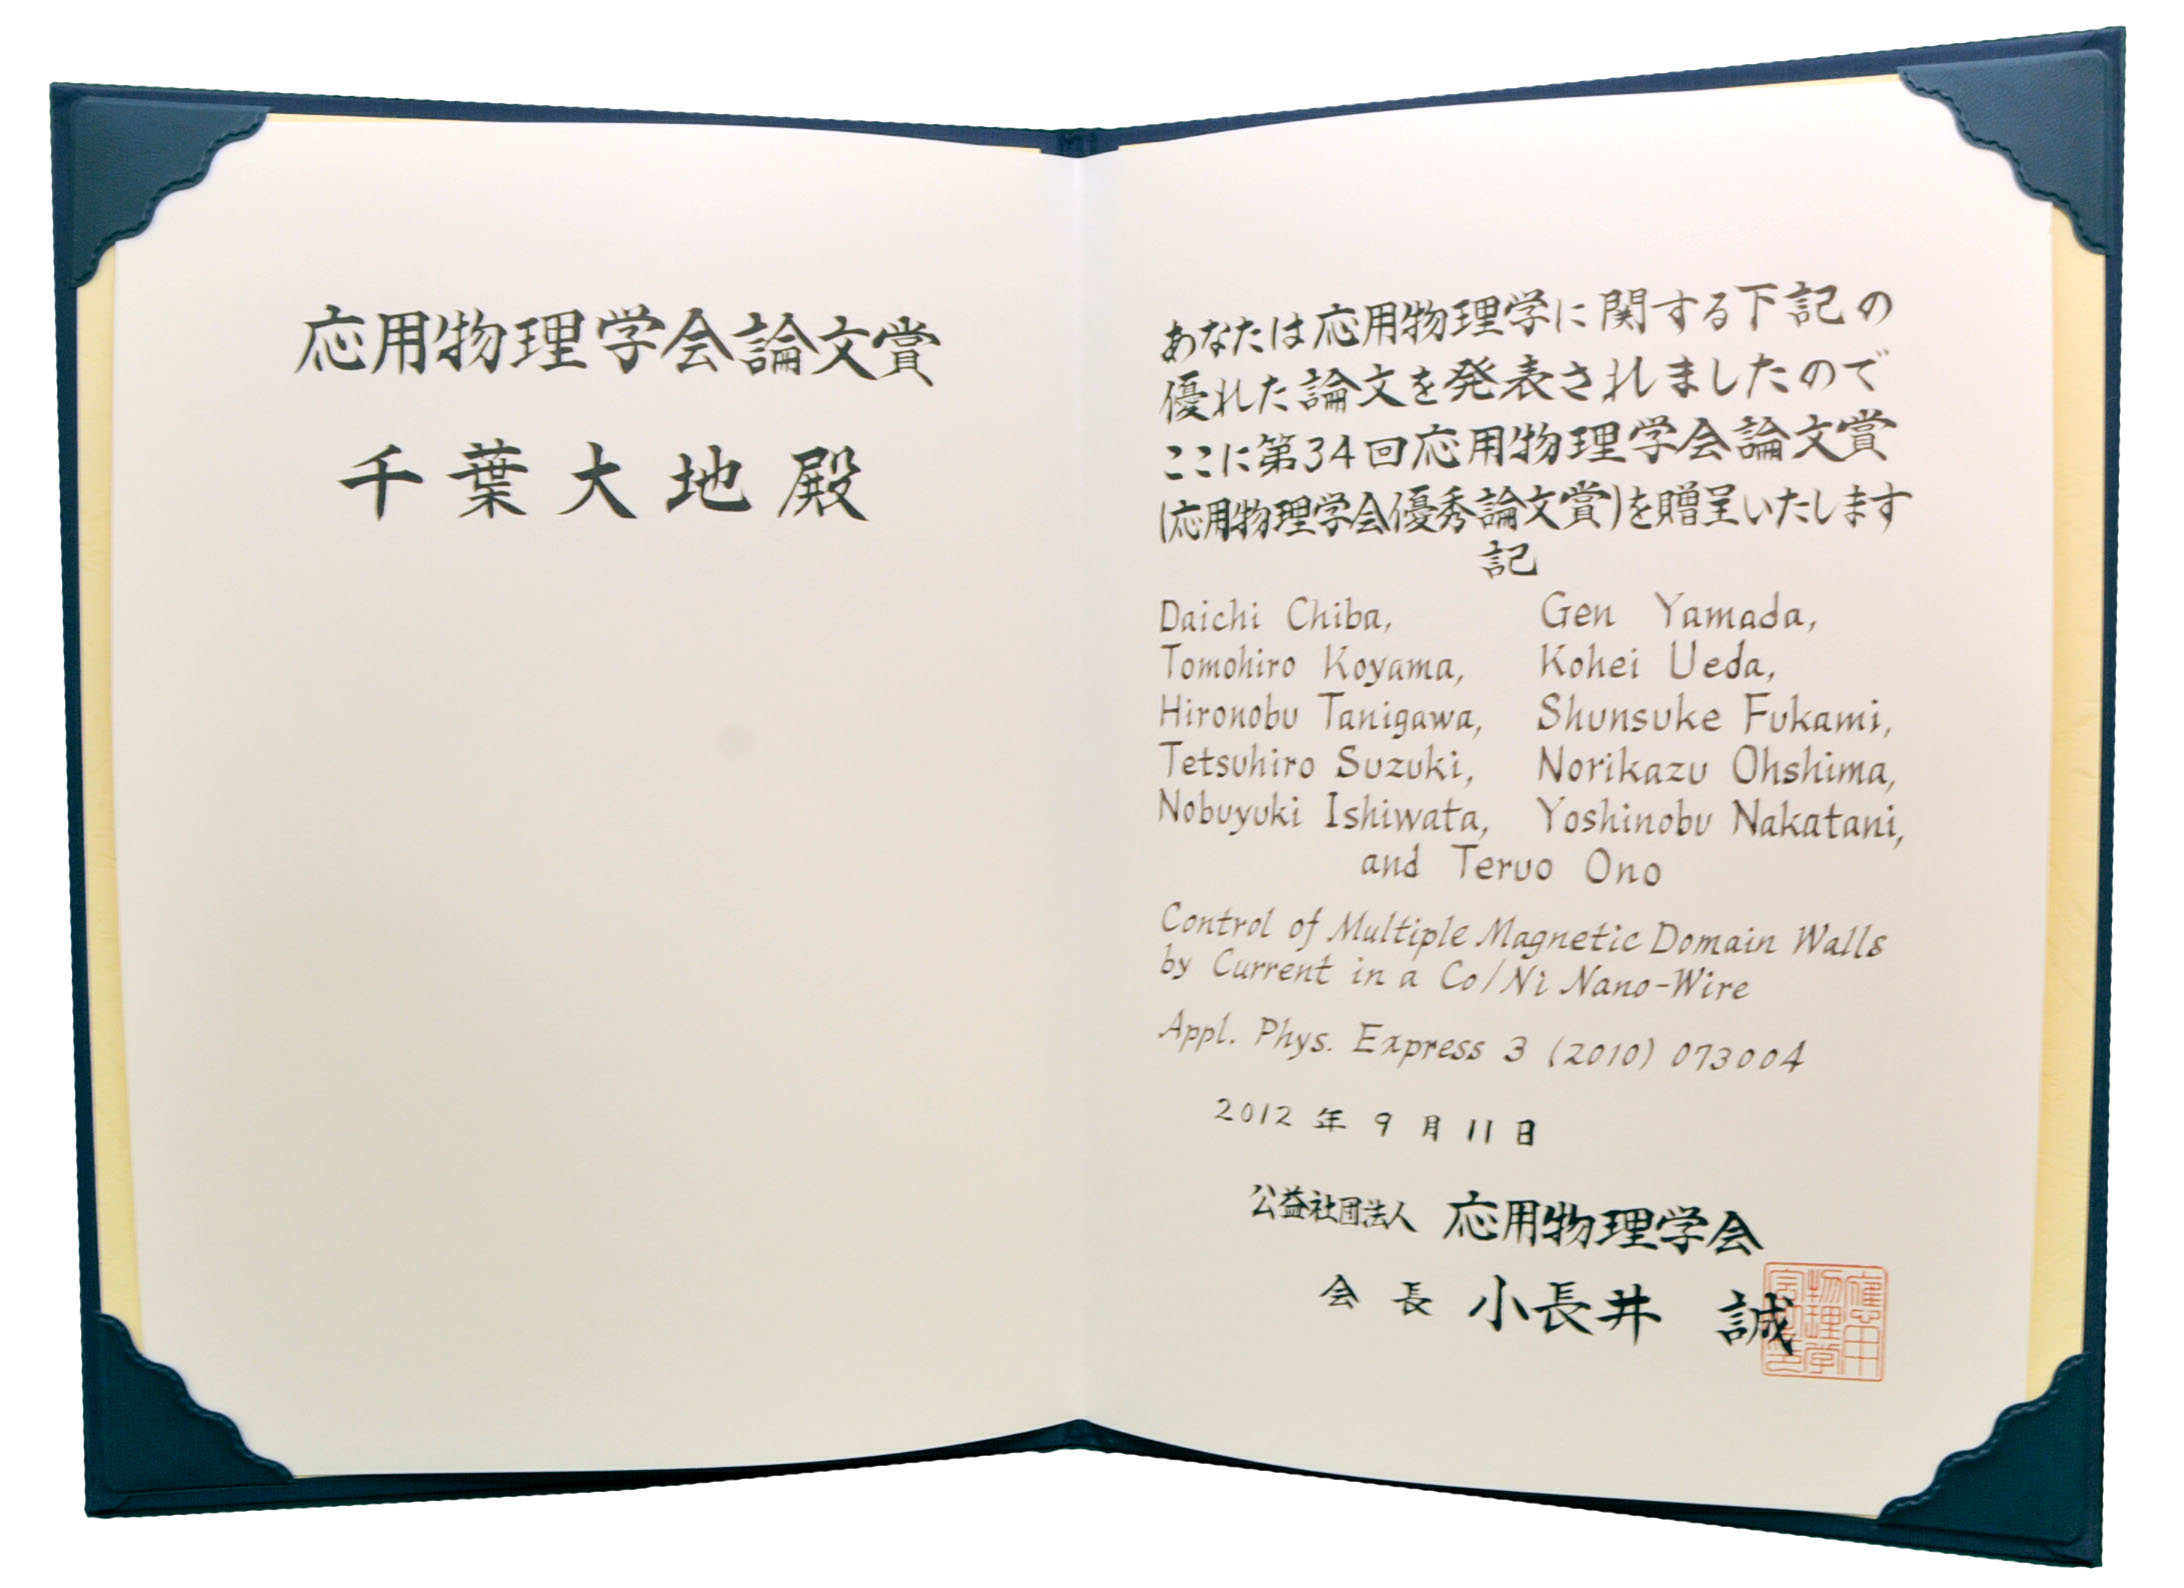 応用物理学会論文賞
千葉大地殿
あなたは応用物理学に関する下記の
優れた論文を発表されましたので
ここに第34回応用物理学会論文賞
(応用物理学会優秀論文賞)を贈呈いたします
記
Daichi Chiba, Gen Yamada,
Tomohiro Koyama, Kohei Ueda,
Hironobu Tanigawa, Shunsuke Fukami,
Tetsuhiro Suzuki, Norikazu Ohshima,
Nobuyuki Ishiwata, Yoshinobu Nakatani,
and Teruo Ono
Control of Multiple Magnetic Domain Walls
by Current in a Co/Ni Nano-Wire
Appl. Phys. Express 3 (2010) 073004
2012年9月11日
公益社団法人 応用物理学会
会長 小長井 誠